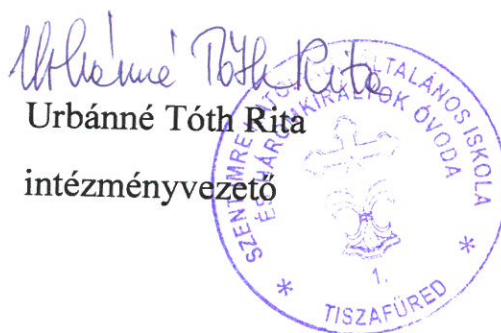 Urbánné Tóth Rita
Urbánné Tóth Rita
intézményvezető
SZENT IMRE KATOLIKUS ÁLTALÁNOS ISKOLA
ÉS HÁROMKIRÁLYOK ÓVODA
1.
* TISZAFÜRED *